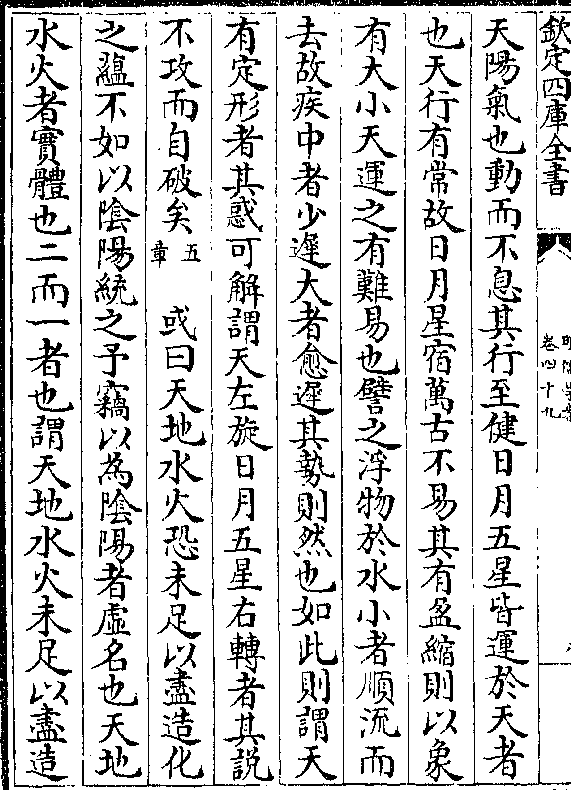 欽定四庫全書
明儒學案
卷四十九
天陽氣也動而不息其行至健日月五星皆運於天者
也天行有常故日月星宿萬古不易其有盈縮則以象
有大小天運之有難易也譬之浮物於水小者順流而
去故疾中者少遲大者愈遲其勢則然也如此則謂天
有定形者其惑可解謂天左旋日月五星右轉者其説
不攻而自破矣五章　或曰天地水火恐未足以盡造化
之藴不如以陰陽統之予竊以為陰陽者虛名也天地
水火者實體也二而一者也謂天地水火未足以盡造